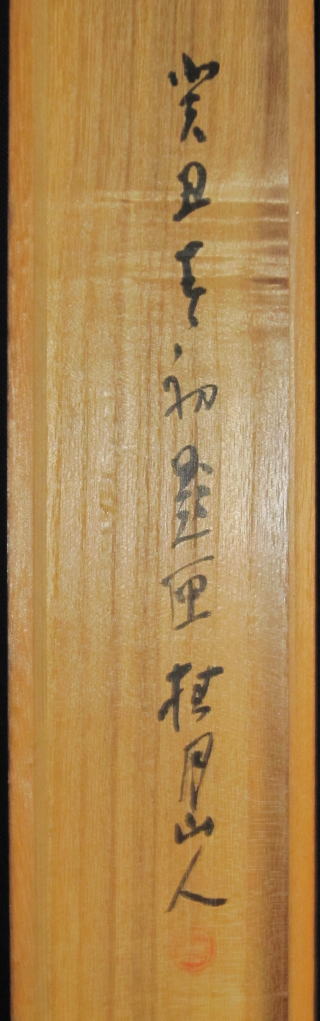 癸丑春初題匣桂月山人